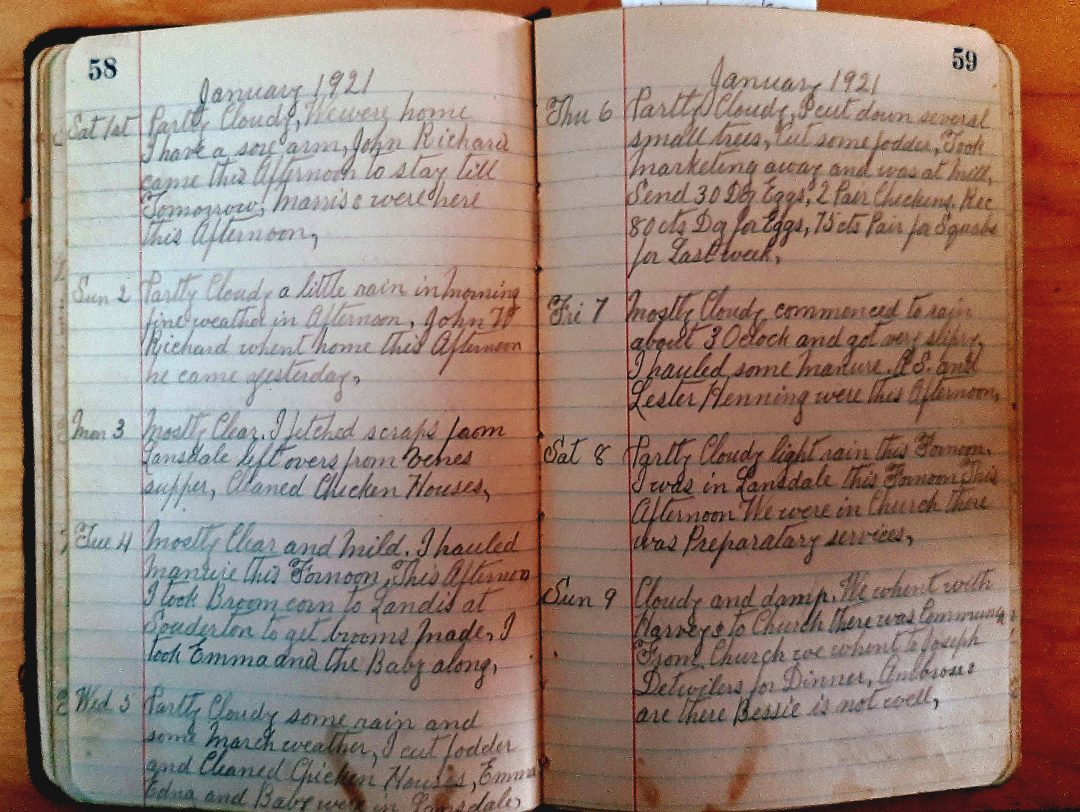 58
January 1921
Sat 1st Partly Cloudy, We were home
I have a sore arm, John Richard
came this Afternoon to stay till
Tomorrow, Mannis s were here
this Afternoon,
Sun 2 Partly Cloudy a little rain in morning
fine weather in Afternoon, John W
Richard whent home this Afternoon
he came yesterday,
Mon 3 Mostly Clear. I fetched scraps from
Lansdale left overs from
supper, Cleaned Chicken Houses,
Tue 4 Mostly Clear and Mild. I hauled
manure this Fornoon, This Afternoon
I took Broom corn to Landis at
Souderton to get brooms made, I
took Emma and the Baby along,
Wed 5 Partly Cloudy some rain and
some March weather, I cut fodder
and Cleaned Chicken Houses, Emma
Edna and Baby were in Lansdale,
59
January 1921
Thu 6 Partly Cloudy, I cut down several
small trees, Cut some fodder, Took
marketing away and was at Mill,
Send 30 Dz Eggs, 2 Pair Chickens, Rec
80cts Dz for Eggs, 75cts Pair for Squabs
for Last week,
Fri 7 Mostly Cloudy commenced to rain
about 3 Oclock and got very slipry,
I hauled some manure. A S. and
Lester Henning were this Afternoon,
Sat 8 Partly Cloudy light rain this Fornoon.
I was in Lansdale this Fornoon This
Afternoon We were in Church there
was Preparatary services,
Sun 9 Cloudy and damp. We whent with
Harveys to Church there was
From Church we whent to Joseph
Detwilers for Dinner, Ambroses
are there Bessie is not well,